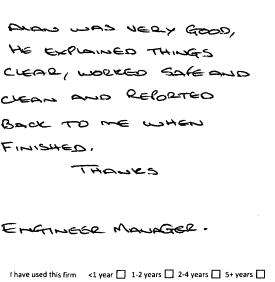 ALAN WAS VERY GOOD,
HE EXPLAINED THINGS
CLEAR, WORKED SAFE AND
CLEAN AND REPORTED
BACK TO ME WHEN
FINISHED.
THANKS
ENGINEER MANAGER.
I have used this firm <1 year ☐ 1-2 years ☐ 2-4 years ☐ 5+ years ☐